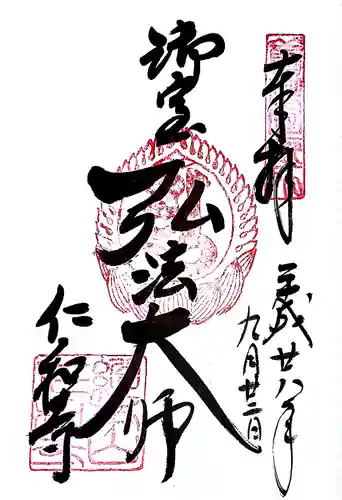 奉拝
平成廿八年
九月廿二日
御室
弘法大師
仁和寺